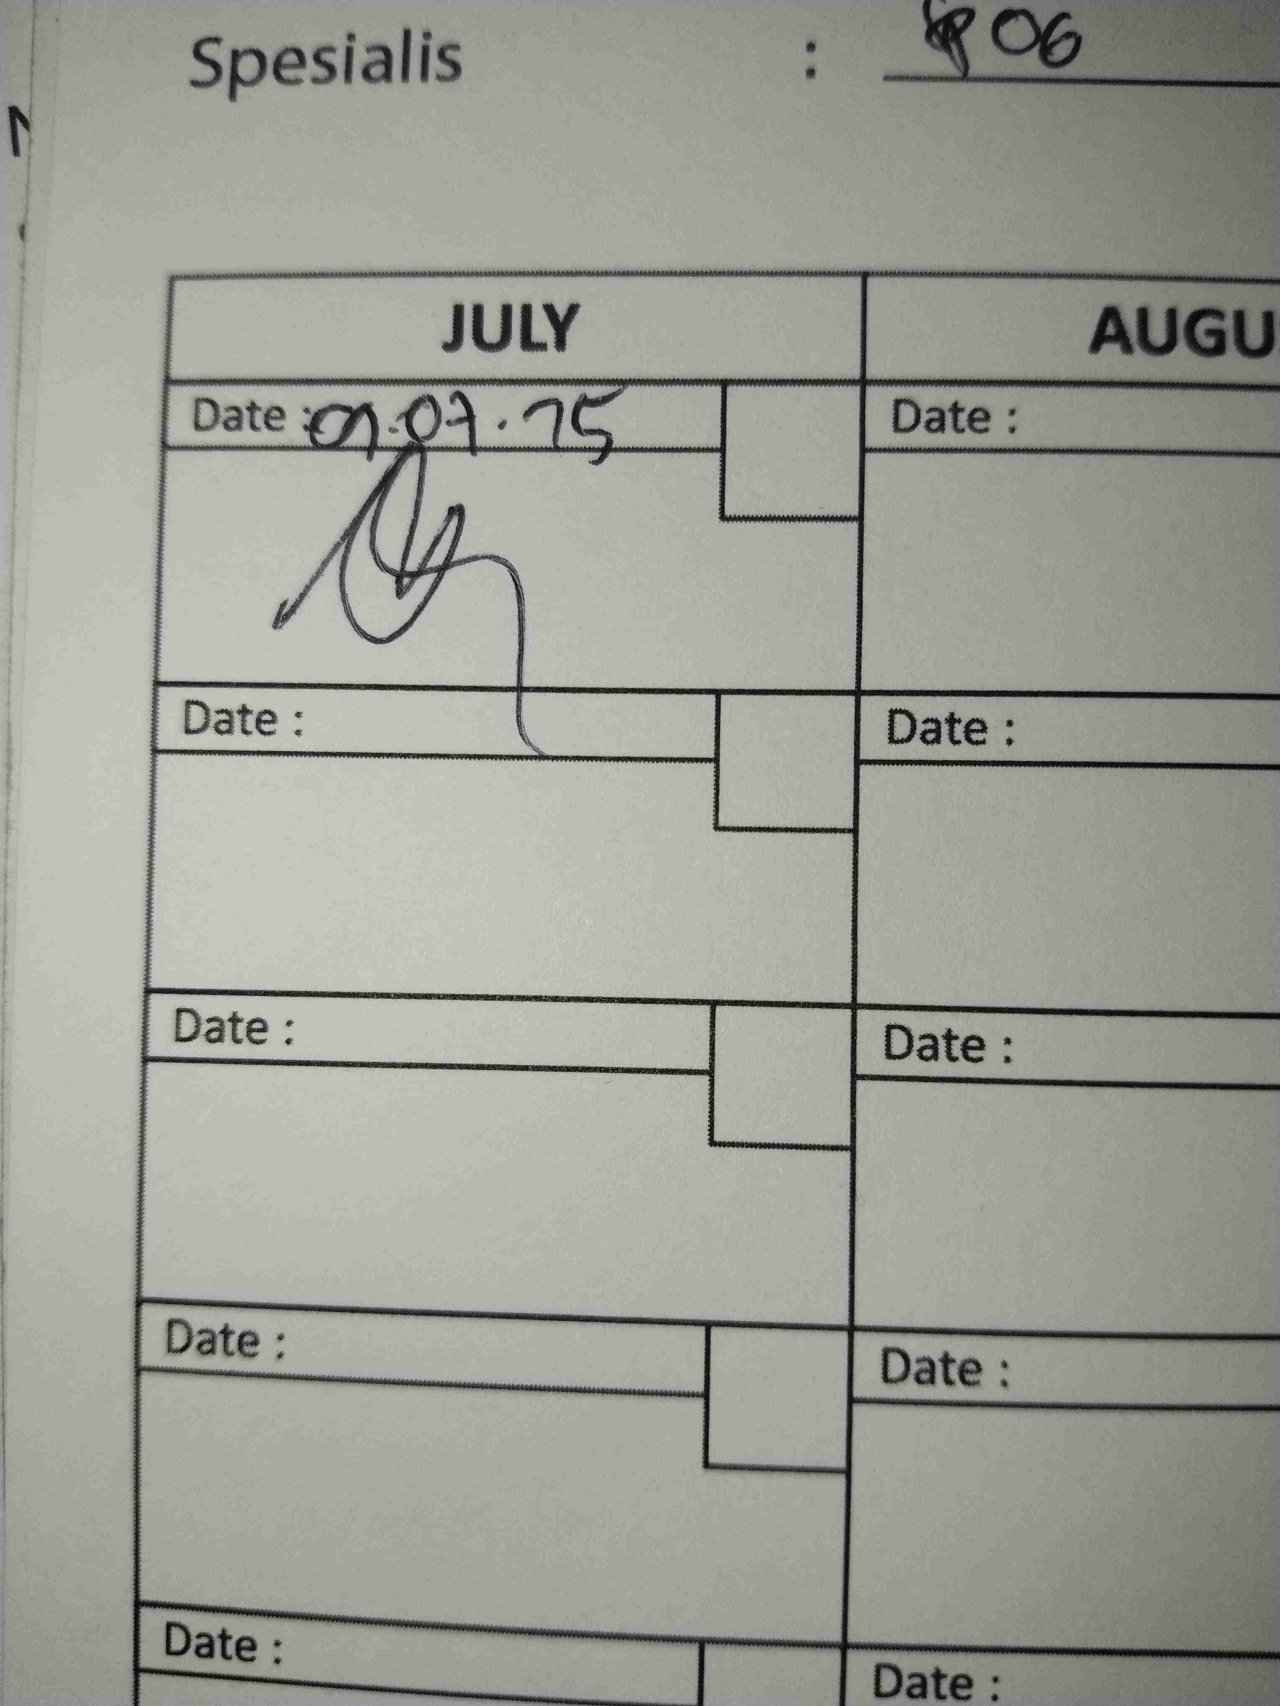 Spesialis : Sp OG
JULY AUGU
Date : 09.07.25 Date :
Date : Date :
Date : Date :
Date : Date :
Date : Date :